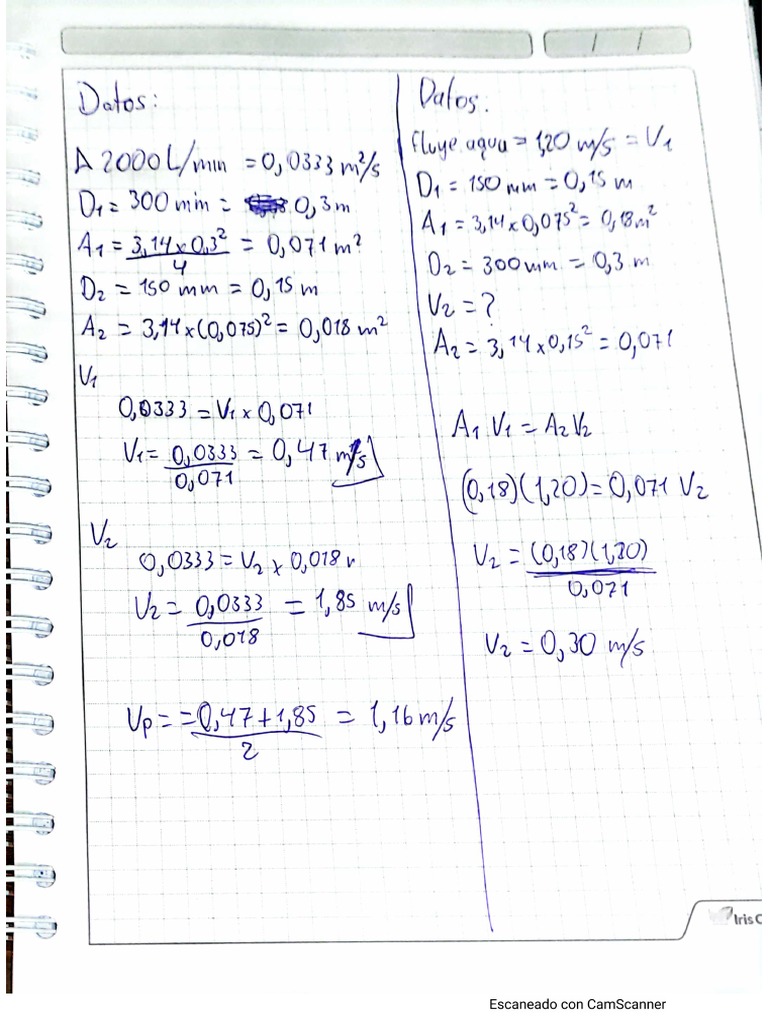 Datos:
A 2000 L/min = 0,0333 m²/s
D₁ = 300 min = 0,3 m
A₁ = 3,14 x 0,3² / 4 = 0,071 m²
D₂ = 150 mm = 0,15 m
A₂ = 3,14 x (0,075)² = 0,018 m²
V₁
0,0333 = V₁ x 0,071
V₁ = 0,0333 / 0,071 = 0,47 m/s
V₂
0,0333 = V₂ x 0,018
V₂ = 0,0333 / 0,018 = 1,85 m/s
Vp = = 0,47 + 1,85 / 2 = 1,16 m/s
Datos:
fluye agua = 1,20 m/s = V₁
D₁ = 150 mm = 0,15 m
A₁ = 3,14 x 0,075² = 0,18 m²
D₂ = 300 mm = 0,3 m
V₂ = ?
A₂ = 3,14 x 0,15² = 0,071
A₁ V₁ = A₂ V₂
(0,18)(1,20) = 0,071 V₂
V₂ = (0,18)(1,20) / 0,071
V₂ = 0,30 m/s
Iris
Escaneado con CamScanner